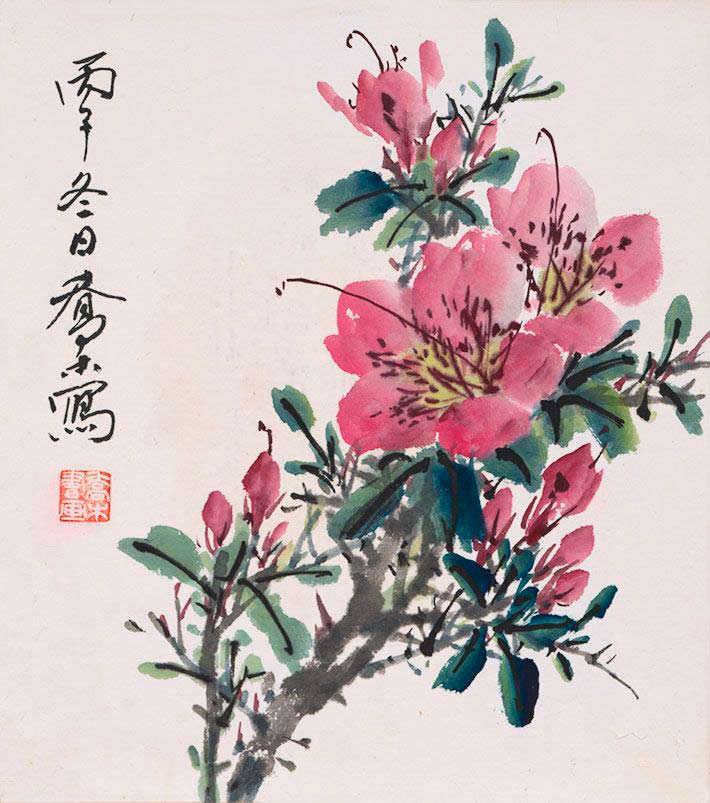 丙午冬日喬木寫
喬木
書画